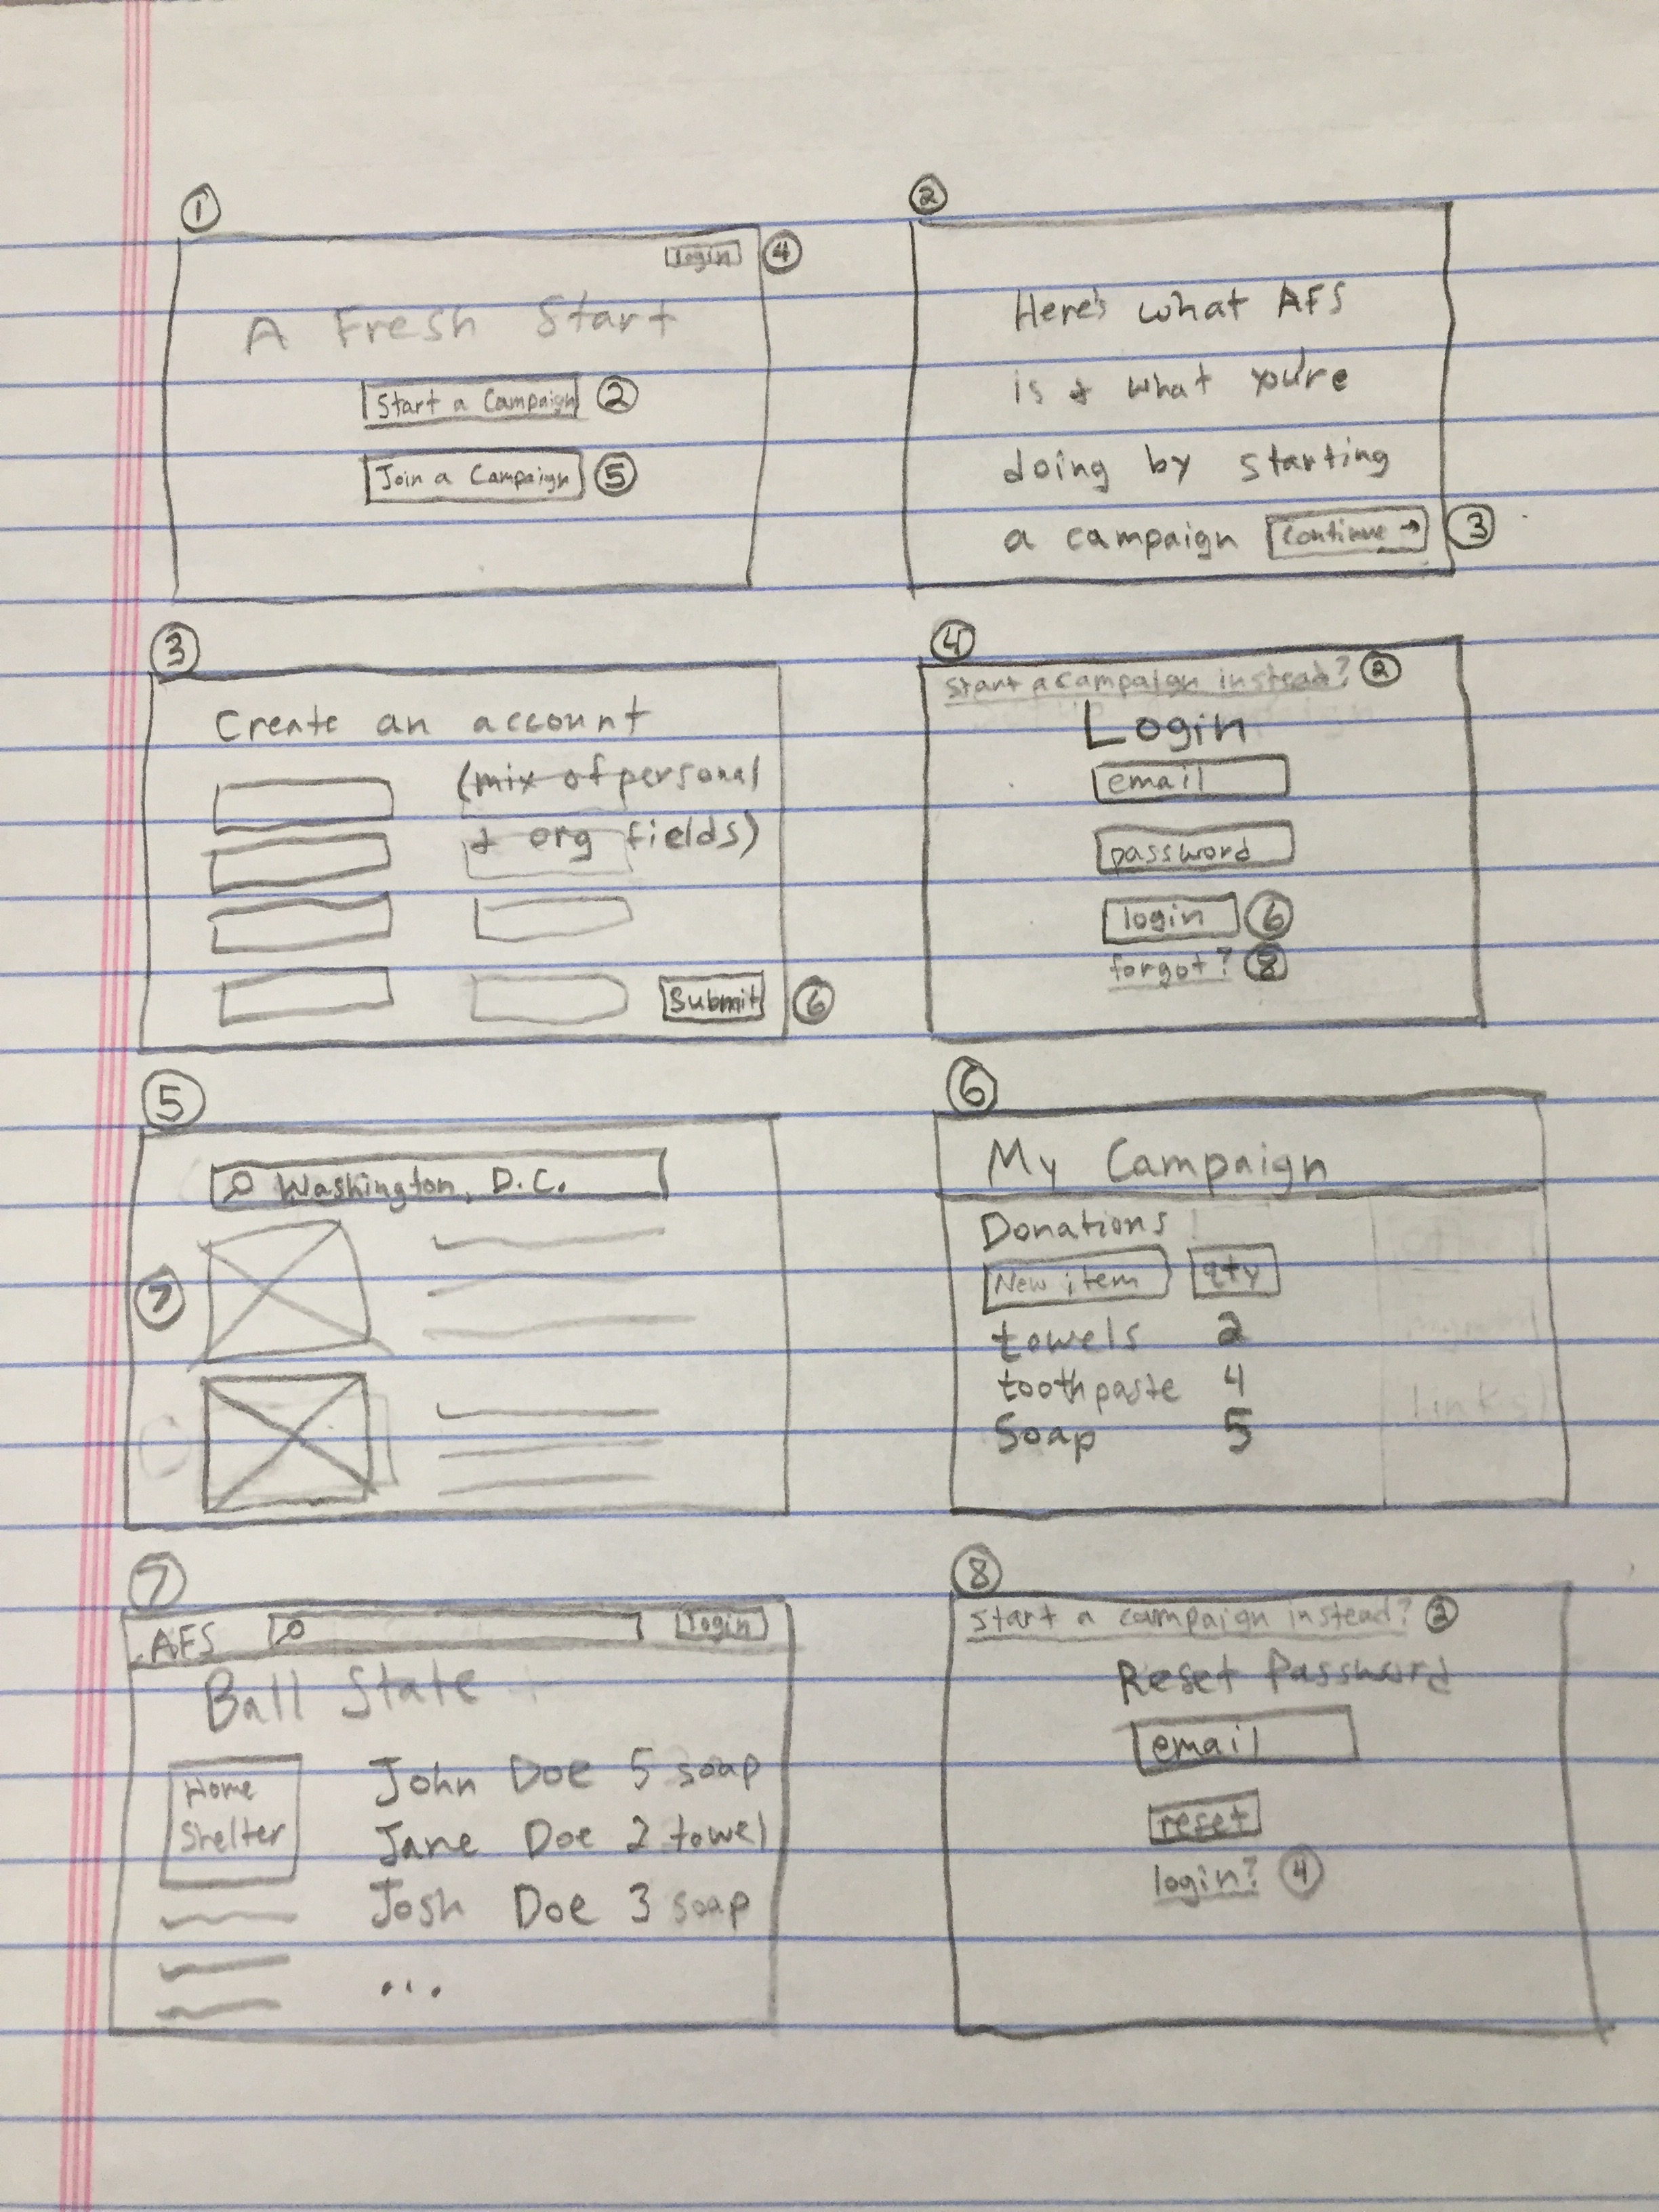 1
login 4
A Fresh Start
Start a Campaign 2
Join a Campaign 5
2
Here's what AFS
is + what you're
doing by starting
a campaign continue → 3
3
Create an account
(mix of personal
+ org fields)
Submit 6
4
Start a campaign instead? 2
Login
email
password
login 6
forgot? 8
5
Washington, D.C.
7
6
My Campaign
Donations
New item qty
towels 2
toothpaste 4
Soap 5
links)
7
AFS login
Ball State
Home
Shelter
John Doe 5 soap
Jane Doe 2 towel
Josh Doe 3 soap
...
8
Start a campaign instead? 2
Reset Password
email
reset
login? 4